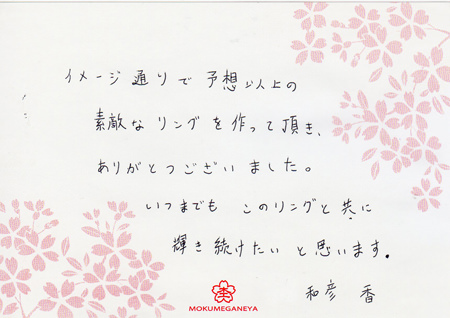 イメージ通りで予想以上の
素敵なリングを作って頂き、
ありがとうございました。
いつまでも このリングと共に
輝き続けたいと思います。
和彦 香
MOKUMEGANEYA